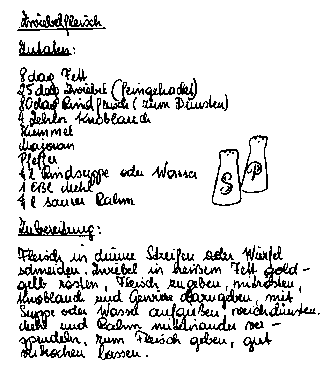 Zwiebelfleisch
Zutaten:
8 dag Fett
25 dag Zwiebel (feingehackt)
80 dag Rindfleisch (zum Dünsten)
2 Zehen Knoblauch
Kümmel
Majoran
Pfeffer
1/4 l Rindsuppe oder Wasser
1 Eßl Mehl
1/4 l saurer Rahm
S P
Zubereitung:
Fleisch in dünne Streifen oder Würfel
schneiden. Zwiebel in heissem Fett gold-
gelb rösten, Fleisch zugeben, mitrösten,
Knoblauch und Gewürze dazugeben, mit
Suppe oder Wasser aufgießen, weichdünsten.
Mehl und Rahm miteinander ver-
sprudeln, zum Fleisch geben, gut
verkochen lassen.